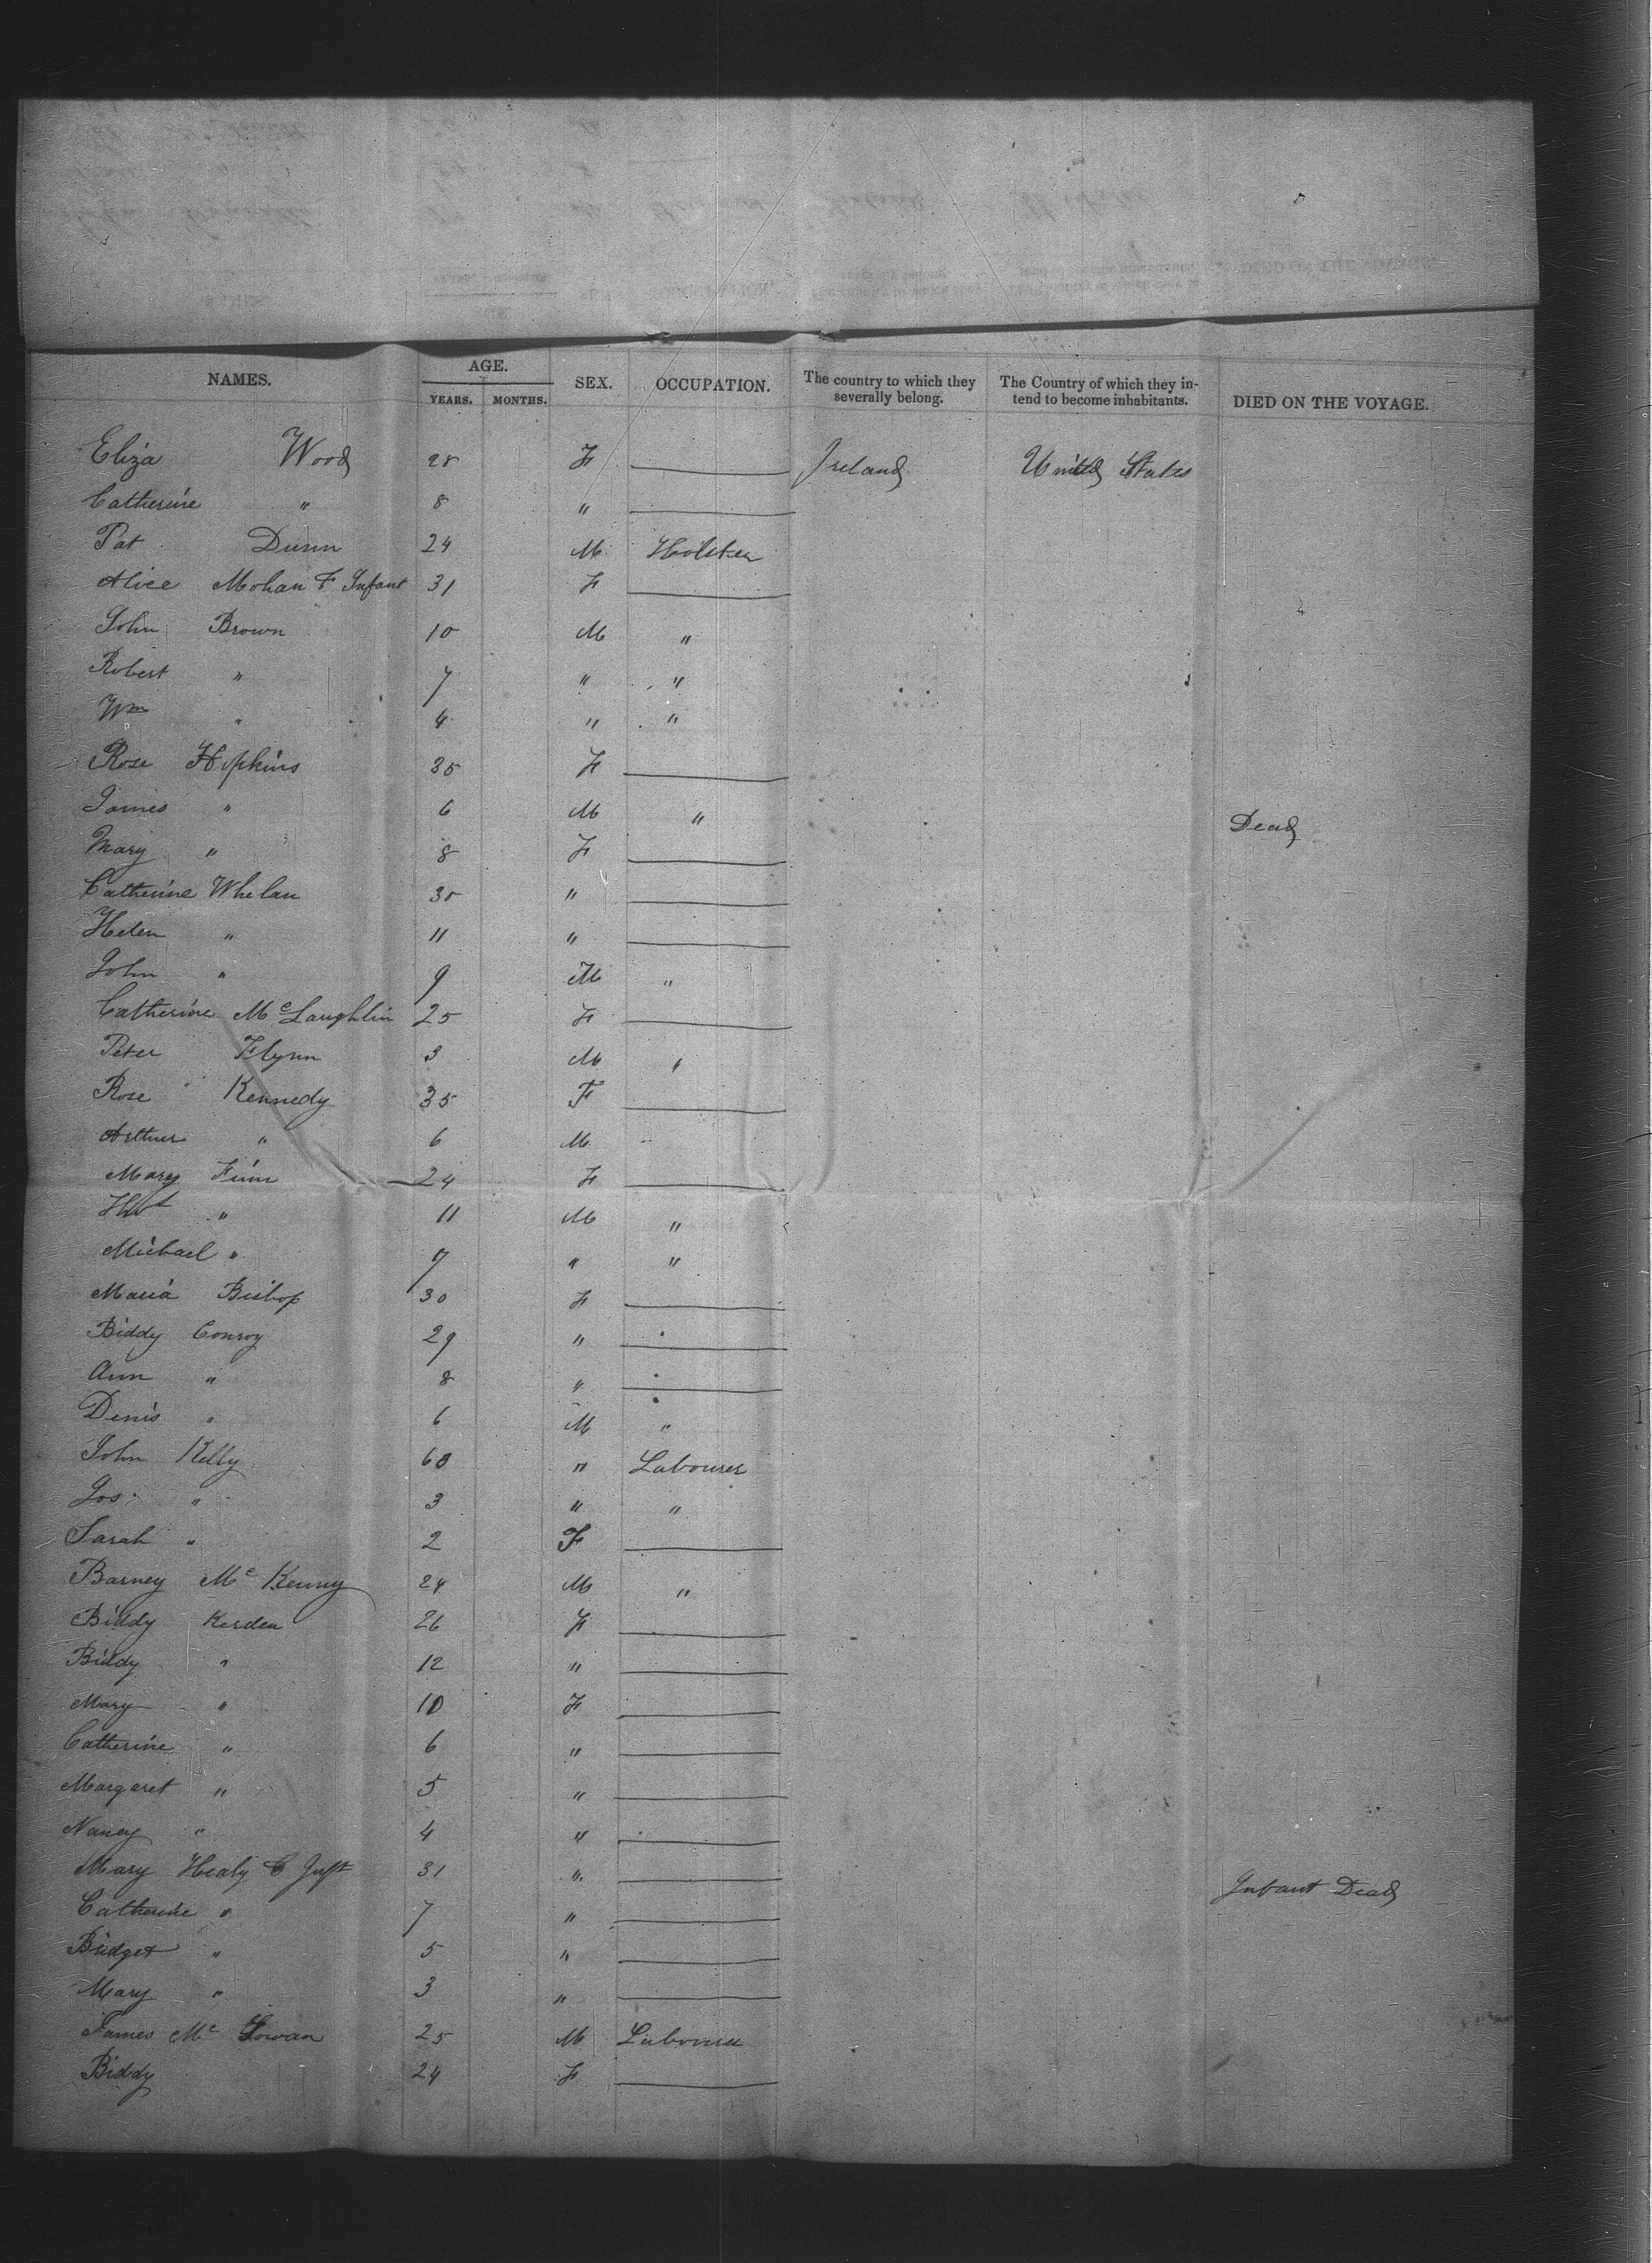 NAMES. AGE. SEX. OCCUPATION. The country to which they severally belong. The Country of which they intend to become inhabitants. DIED ON THE VOYAGE.
YEARS. MONTHS.
Eliza Wood 28 F Ireland United States
Catherine " 8 "
Pat Dunn 24 M
Alice Mohan & Infant 31 F
John Brown 10 M "
Robert " 7 " "
Wm " 4 " "
Rose Hopkins 35 F
James " 6 M " Dead
Mary " 8 F
Catherine Whelan 30 "
Helen " 11 "
John " 9 M "
Catherine McLaughlin 25 F
Peter Flynn 3 M "
Rose Kennedy 35 F
Arthur " 6 M "
Mary Finn 24 F
" 11 M "
Michael " 7 " "
Maria Bishop 30 F
Biddy Conroy 29 "
Ann " 8 "
Denis " 6 M "
John Kelly 60 " Labourer
Jos. " 3 " "
Sarah " 2 F
Barney Mc Kenny 24 M "
Biddy Kerden 26 F
Biddy " 12 "
Mary " 10 F
Catherine " 6 "
Margaret " 5 "
Nancy " 4 "
Mary Healy & Inft 31 " Infant Dead
Catherine " 7 "
Bridget " 5 "
Mary " 3 "
James Mc Gowan 25 M Labourer
Biddy 24 F